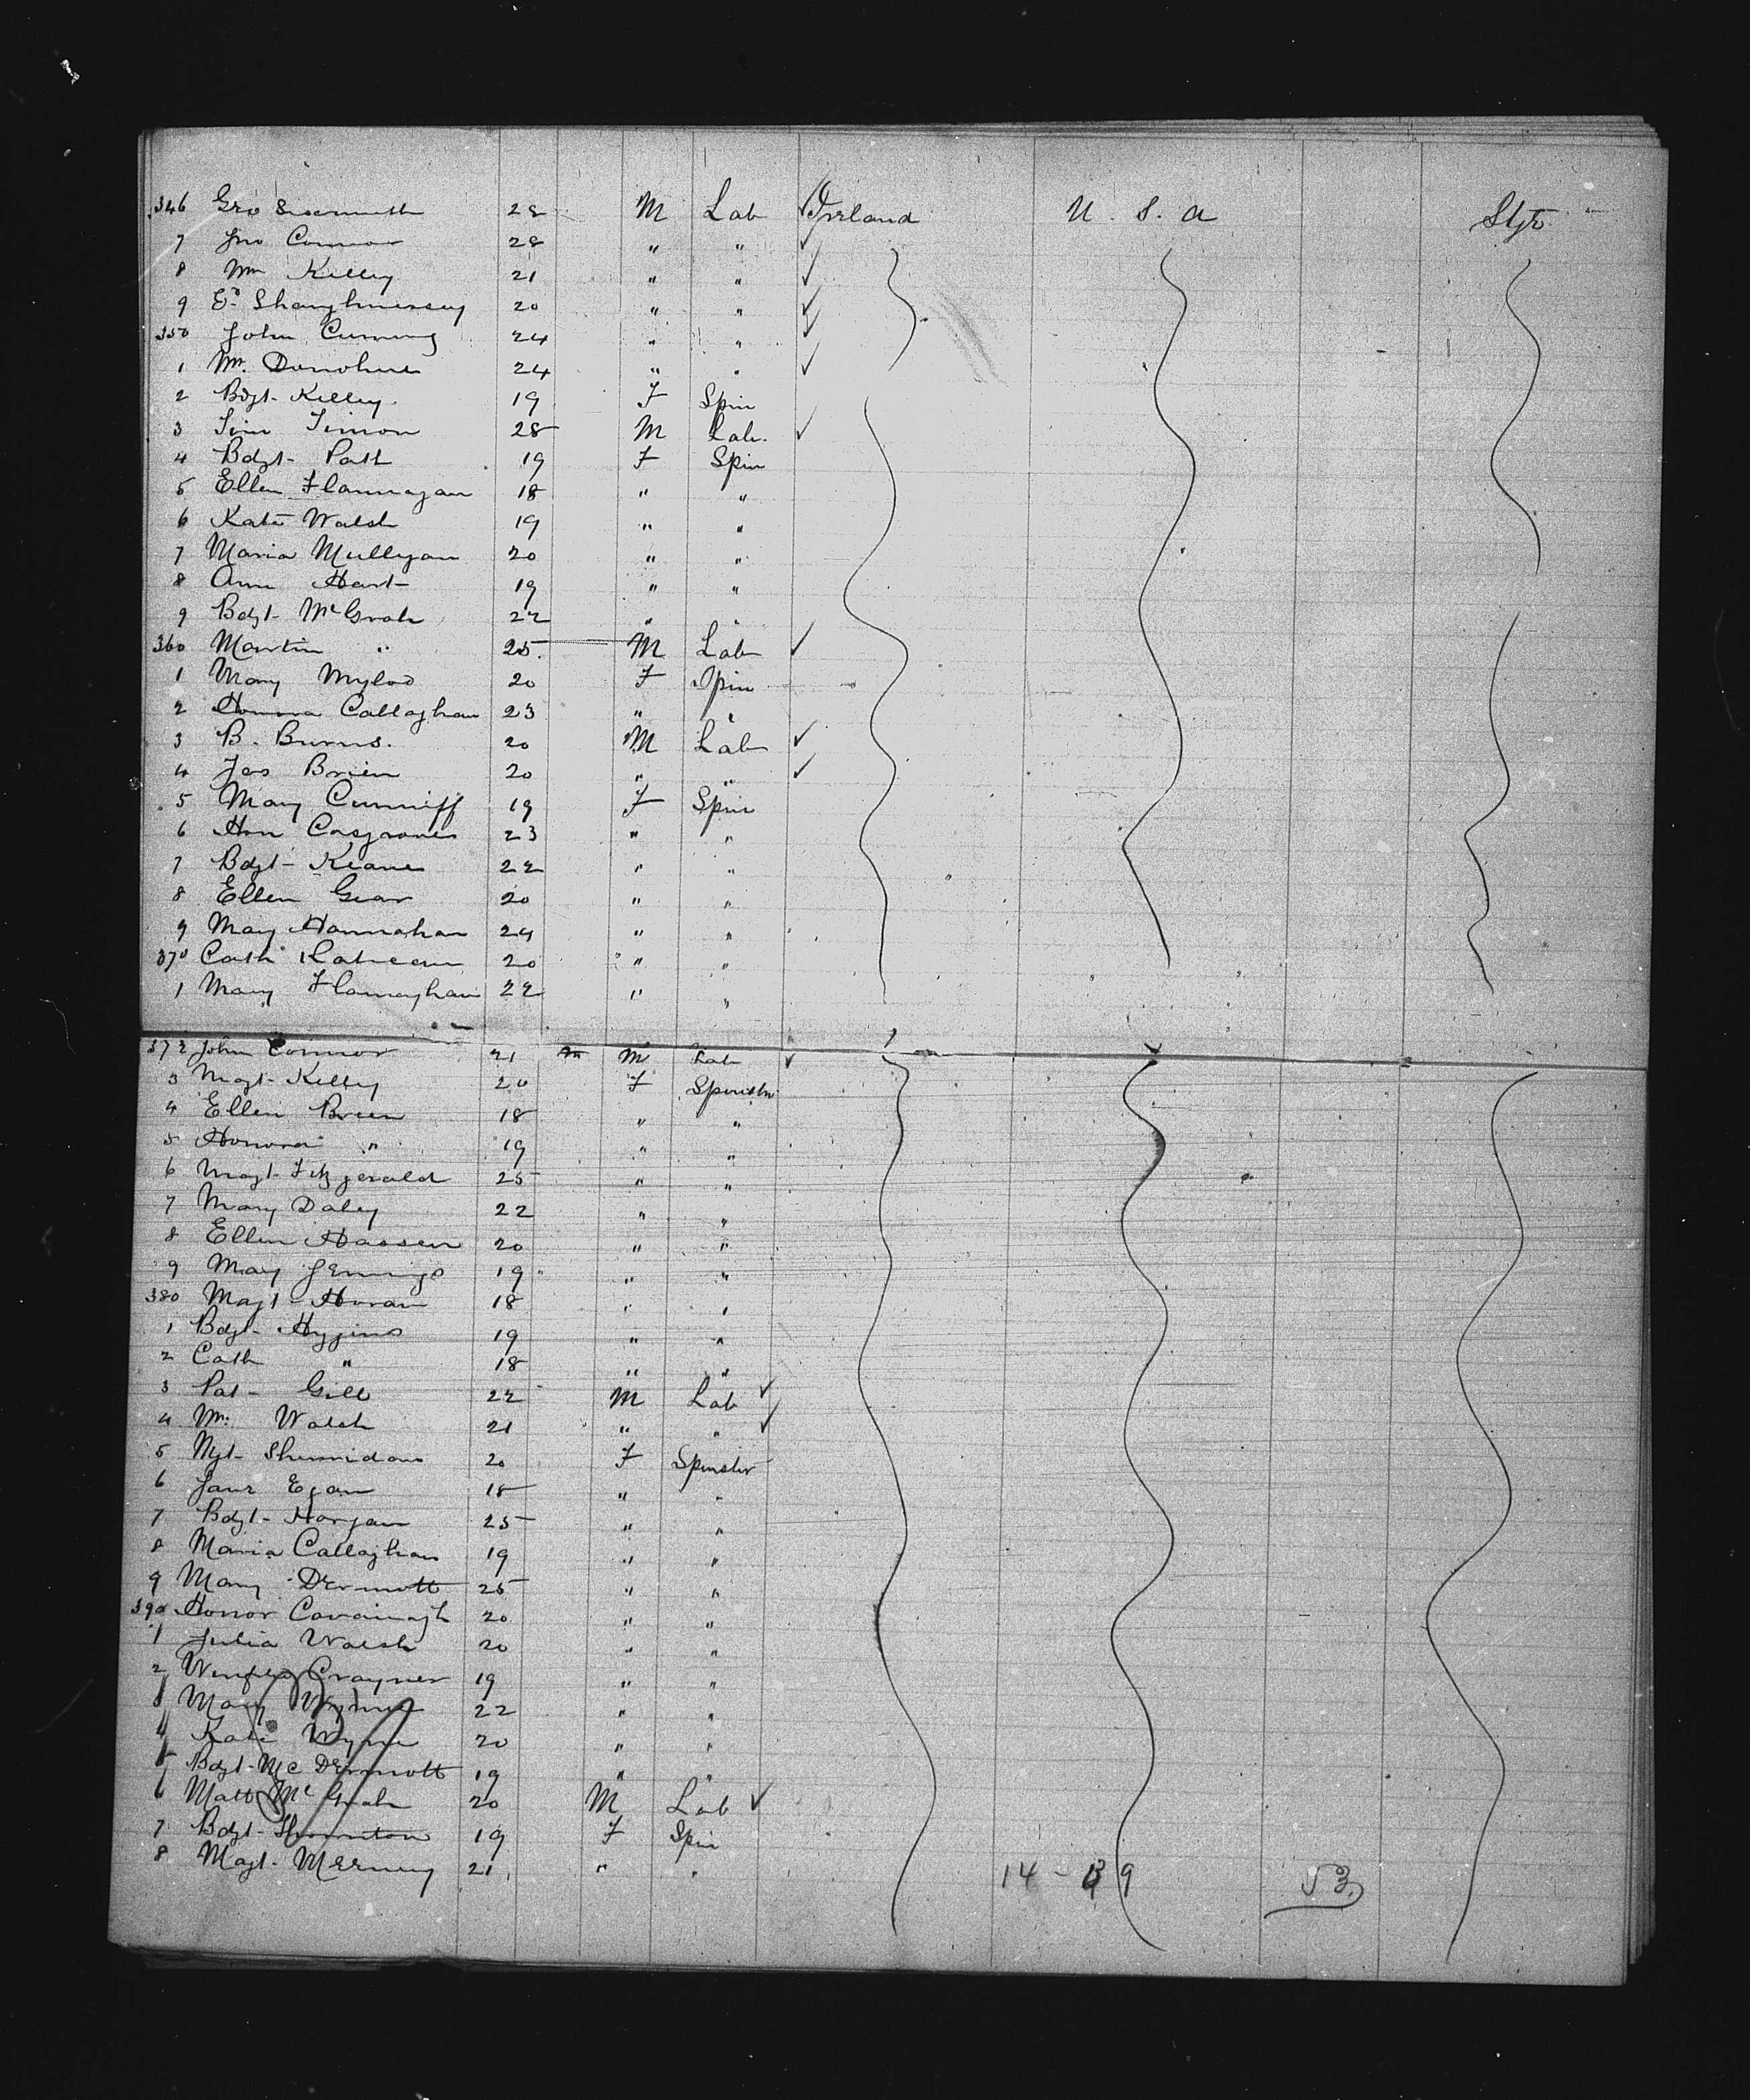 346 Geo 28 M Lab Ireland U. S. A Stge
7 Jno Connor 28 " "
8 Wm Kelley 21 " "
9 Ed Shaughnessey 20 " "
350 John Cummings 24 " "
1 Wm. Donohue 24 " "
2 Bdgt- Kelley 19 F Spin
3 Jim Timon 28 M Lab.
4 Bdgt- Patt 19 F Spin
5 Ellen Flannagan 18 " "
6 Kate Walsh 19 " "
7 Maria Mullygan 20 " "
8 Ann Hart 19 " "
9 Bdgt- McGrah 22 " "
360 Martin " 25 M Lab
1 Mary Mylod 20 F Spin
2 Honora Callaghan 23 " "
3 B. Burns. 20 M Lab
4 Jas Brien 20 " "
5 Mary Cunniff 19 F Spin
6 Hon Cosgrove 23 " "
7 Bdgt- Keane 22 " "
8 Ellen Gear 20 " "
9 Mary Hannahan 24 " "
370 Cath 20 " "
1 Mary Flanaghan 22 " "
372 John Connor 21 M Lab
3 Magt- Kelley 20 F Spinster
4 Ellen Breen 18 " "
5 Honora " 19 " "
6 Magt- Fitzgerald 25 " "
7 Mary Daley 22 " "
8 Ellen Hassen 20 " "
9 Mary Jennings 19 " "
380 Magt- Horan 18 " "
1 Bdgt- Higgins 19 " "
2 Cath " 18 " "
3 Pat- Gill 22 M Lab
4 Wm: Walsh 21 " "
5 Mgt- Sherridan 20 F Spinster
6 Jane Egan 18 " "
7 Bdgt- Horgan 25 " "
8 Maria Callaghan 19 " "
9 Mary Dermott 25 " "
390 Honor Cavanagh 20 " "
1 Julia Walsh 20 " "
2 Winifred Crayner 19 " "
3 Mary Wynne 22 " "
4 Kate Wynne 20 " "
5 Bdgt- McDermott 19 " "
6 Matt McGrah 20 M Lab
7 Bdgt- Thornton 19 F Spin
8 Magt- 21 " "
14 - 39 53